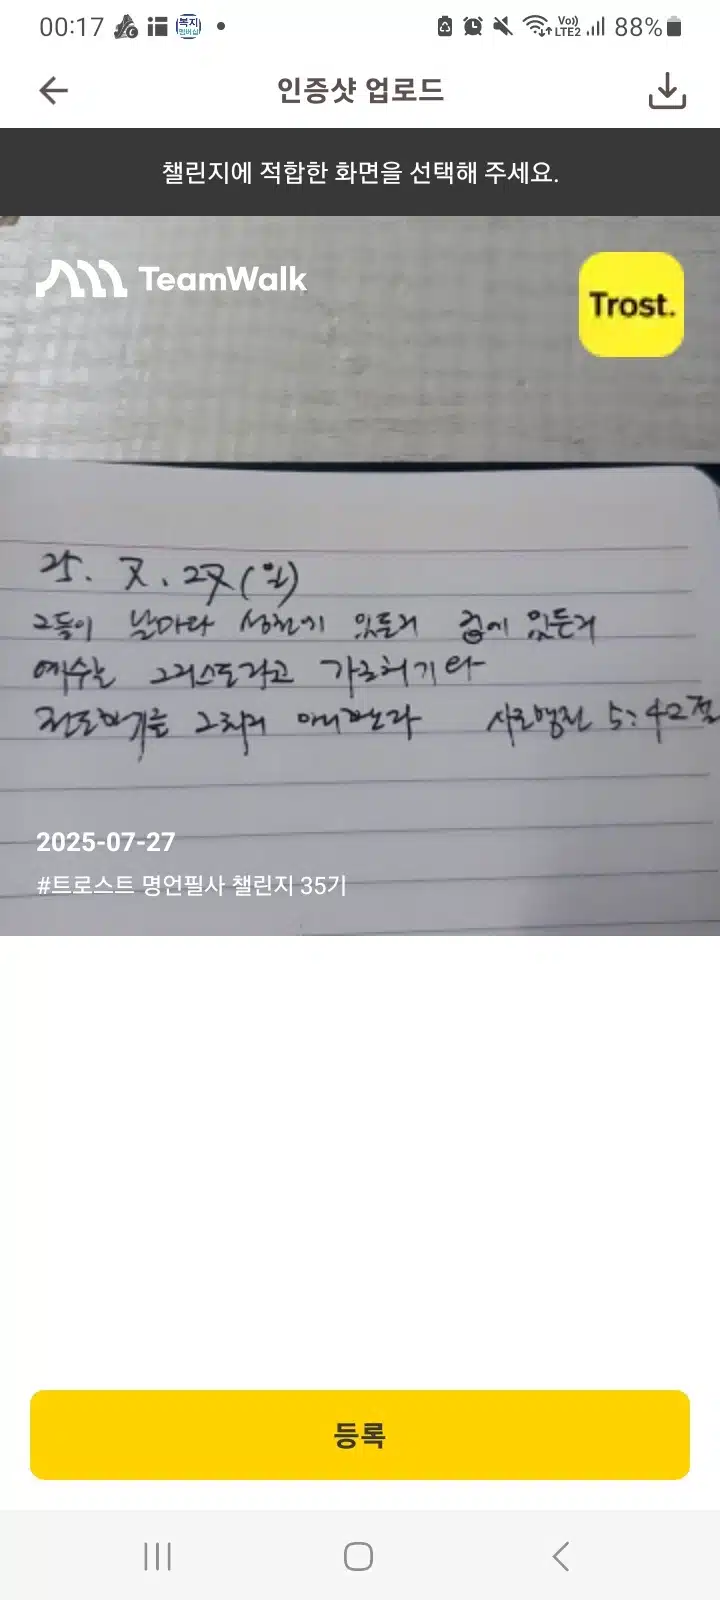 00:17
복지
멤버십
Vo))
LTE2
88%
인증샷 업로드
챌린지에 적합한 화면을 선택해 주세요.
TeamWalk
Trost.
25. 7. 27 (일)
그들이 날마다 성전에 있든지 집에 있든지
예수는 그리스도라고 가르치기와
전도하기를 그치지 아니하니라 사도행전 5:42절
2025-07-27
#트로스트 명언필사 챌린지 35기
등록